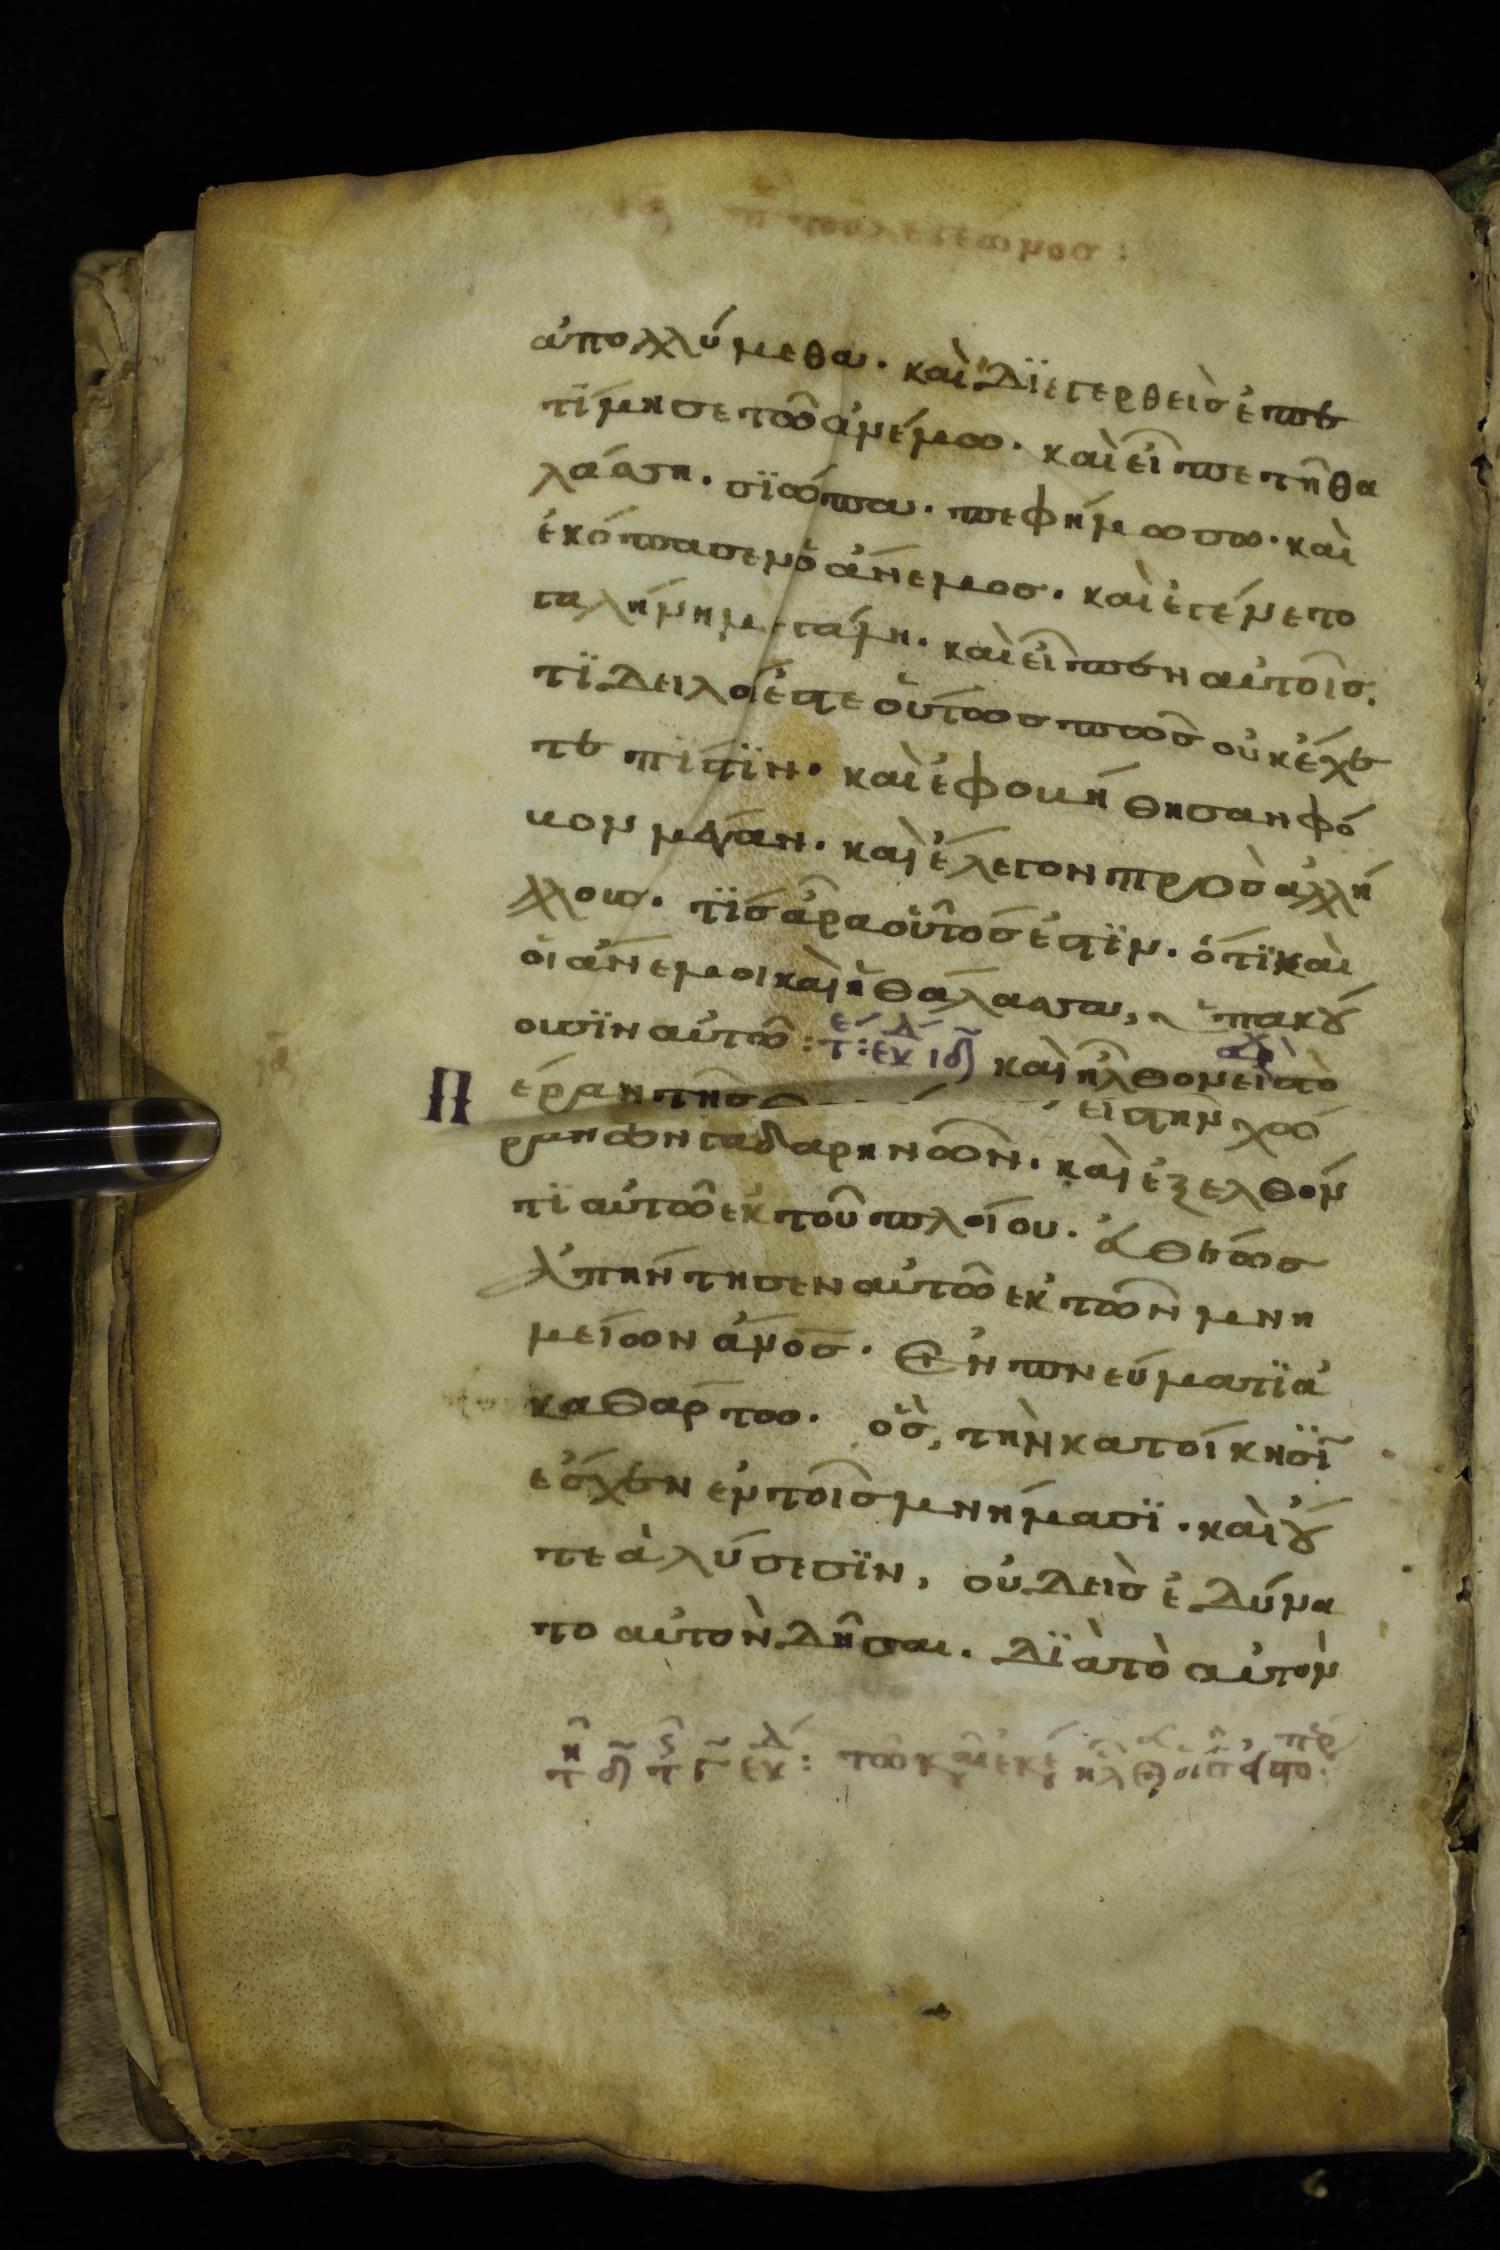 λεγεωνος :
ἀπολλύμεθα. καὶ διεγερθεὶς ἐπε
τίμησε τῶ ἀνέμω. καὶ εἶπε τῆ θα
λάσση. σιώπα. πεφίμωσω. καὶ
ἐκόπασεν ὁ ἄνεμος. καὶ ἐγένετο
γαλήνη μεγάλη. καὶ εἶπεν αὐτοῖς.
τί δειλοί ἐστε οὕτως πῶς οὐκ ἔχε
τε πίστιν. καὶ ἐφοβήθησαν φό
βον μέγαν. καὶ ἔλεγον πρὸς ἀλλή
λλους. τίς ἄρα οὗτός ἐστιν. ὅτι καὶ
οἱ ἄνεμοι καὶ ἡ θάλασσα, ὑπακού
ουσιν αὐτῶ :
καὶ ἦλθον εἰς τὸ
Πέραν τῆς θ εἰς τὴν χώ
ραν τῶν γαδαρηνῶν. καὶ ἐξελθόν
τι αὐτῶ ἐκ τοῦ πλοίου. εὐθέως
ἀπήντησεν αὐτῶ ἐκ τῶν μνη
μείων ἄνος. ἐν πνεύματι ἀ
καθάρτω. ὃς, τὴν κατοίκησιν
ἔσχεν ἐν τοῖς μνήμασι. καὶ οὔ
τε ἀλύσεσιν, οὐδεὶς ἐδύνα
το αὐτὸν δῆσαι. διὰ τὸ αὐτὸν
τῶ κ